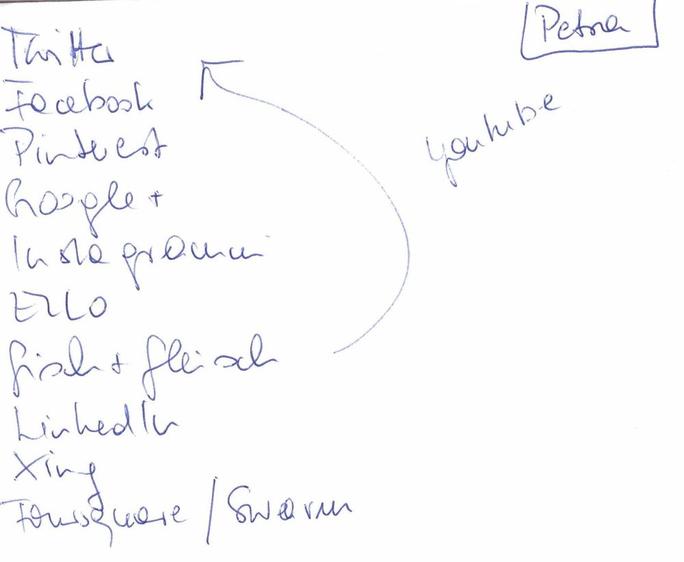 Petra
Twitter
Facebook
youtube
Pinterest
Google+
Instagram
Ello
fisch+fleisch
LinkedIn
Xing
Foursquare / Swarm